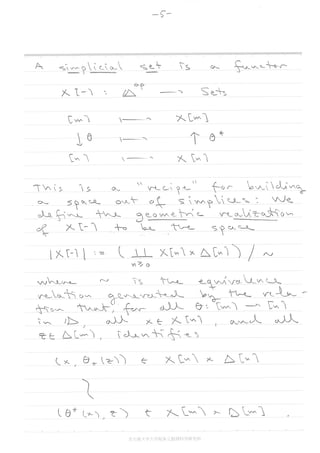 -5-
A simplicial set is a functor
X[-] : Δ^op → Sets
[m] ⟼ X[m]
↓θ ⟼ ↑θ*
[n] ⟼ X[n]
This is a "recipe" for building
a space out of simplices: We
define the geometric realization
of X[-] to be the space
|X[-]| := ( ∐_{n≥0} X[n] × Δ[n] ) / ~
where ~ is the equivalence
relation generated by the rela-
tion that, for all θ: [m] → [n]
in Δ, all x ∈ X[n], and all
z ∈ Δ[m], identifies
(x, θ_*(z)) ∈ X[n] × Δ[n]
(θ*(x), z) ∈ X[m] × Δ[m] .